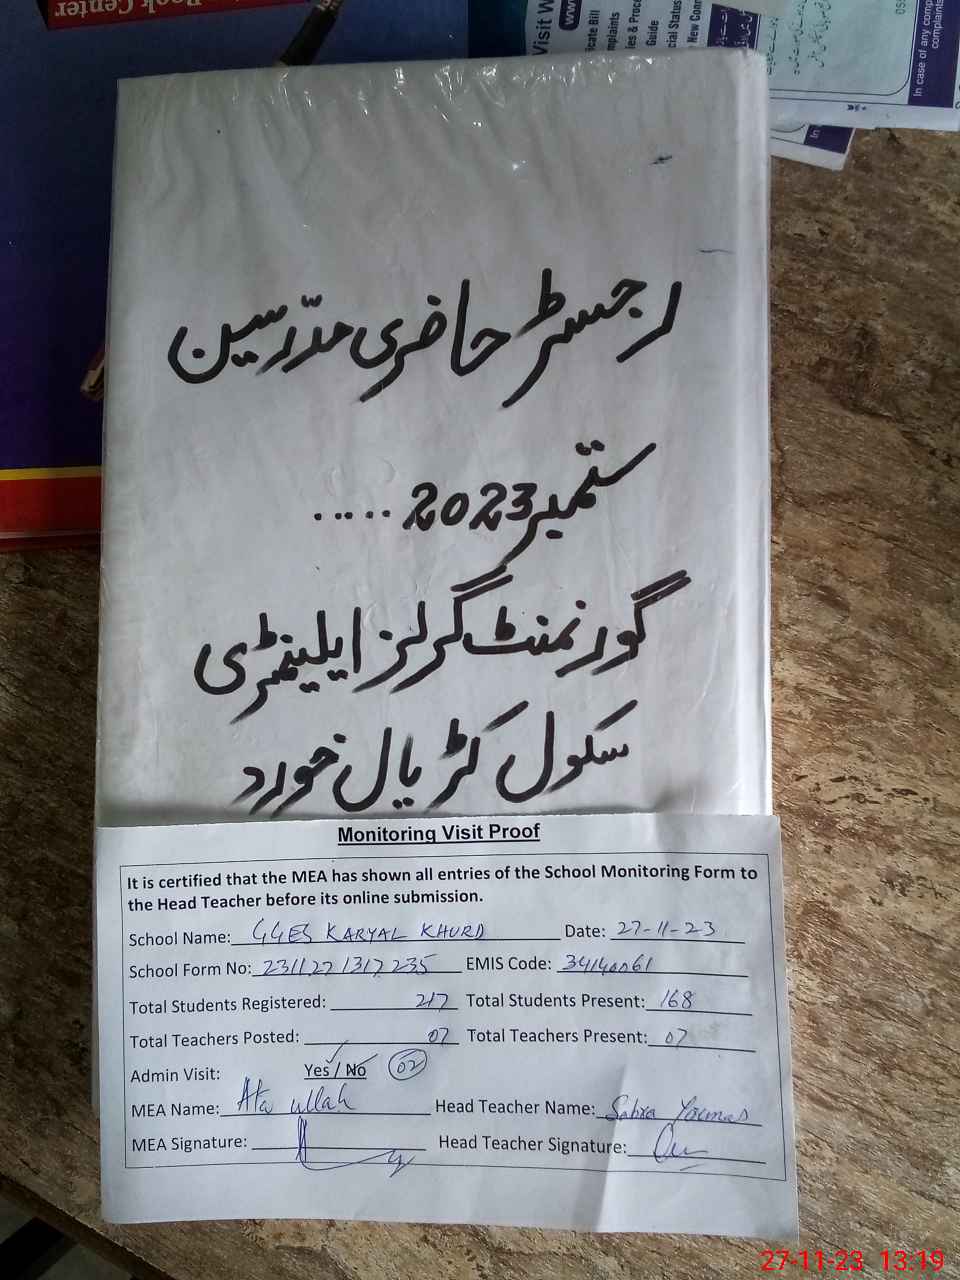 Book Center
Visit W
www
cate Bill
mplaints
es & Proce
Guide
cial Status
New Conn
In case of any comp
complaints
In
رجسٹر حاضری مدرسین
ستمبر 2023 .....
گورنمنٹ گرلز ایلیمنٹری
سکول کڑیال خورد
Monitoring Visit Proof
It is certified that the MEA has shown all entries of the School Monitoring Form to
the Head Teacher before its online submission.
School Name: GGES KARYAL KHURD Date: 27-11-23
School Form No: 231127 1317 235 EMIS Code: 34140061
Total Students Registered: 217 Total Students Present: 168
Total Teachers Posted: 07 Total Teachers Present: 07
Admin Visit: Yes / No 02
MEA Name: Ata ullah Head Teacher Name: Sabra
MEA Signature: Head Teacher Signature:
27-11-23 13:19